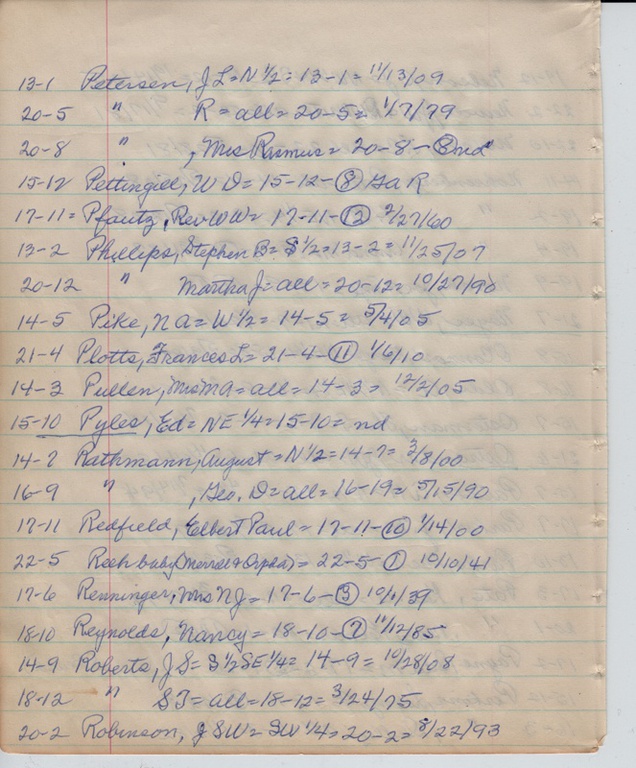 13-1 Petersen, J L = N 1/2 = 13-1 = 11/13/09
20-5 " R = all = 20-5 = 1/7/79
20-8 " , Mrs Rasmus = 20-8- ⑧ nd
15-12 Pettingill, W D = 15-12- ⑧ Ga R
17-11 = Pfautz, Rev WW = 17-11- ⑫ 2/27/60
13-2 Phillips, Stephen B = S 1/2 = 13-2 = 11/25/07
20-12 " Martha J = all = 20-12 = 10/27/90
14-5 Pike, N A = W 1/2 = 14-5 = 5/4/05
21-4 Plotts, Frances L = 21-4- ⑪ 1/6/10
14-3 Pullen, Mrs MA = all = 14-3 = 12/2/05
15-10 Pyles, Ed = NE 1/4 = 15-10 = nd
14-7 Rathmann, August = N 1/2 = 14-7 = 3/8/00
16-9 " , Geo. D = all = 16-19 = 5/15/90
17-11 Redfield, Elbert Paul = 17-11- ⑩ 1/14/00
22-5 Reeh baby (Merrol & Orpha) = 22-5 ① 10/10/41
17-6 Renninger, Mrs NJ = 17-6- ③ 10/1/39
18-10 Reynolds, Nancy = 18-10- ⑦ 11/12/85
14-9 Roberts, J S = S 1/2 SE 1/4 = 14-9 = 10/28/08
18-12 " S J = all = 18-12 = 3/24/75
20-2 Robinson, J S W = SW 1/4 = 20-2 = 8/22/93